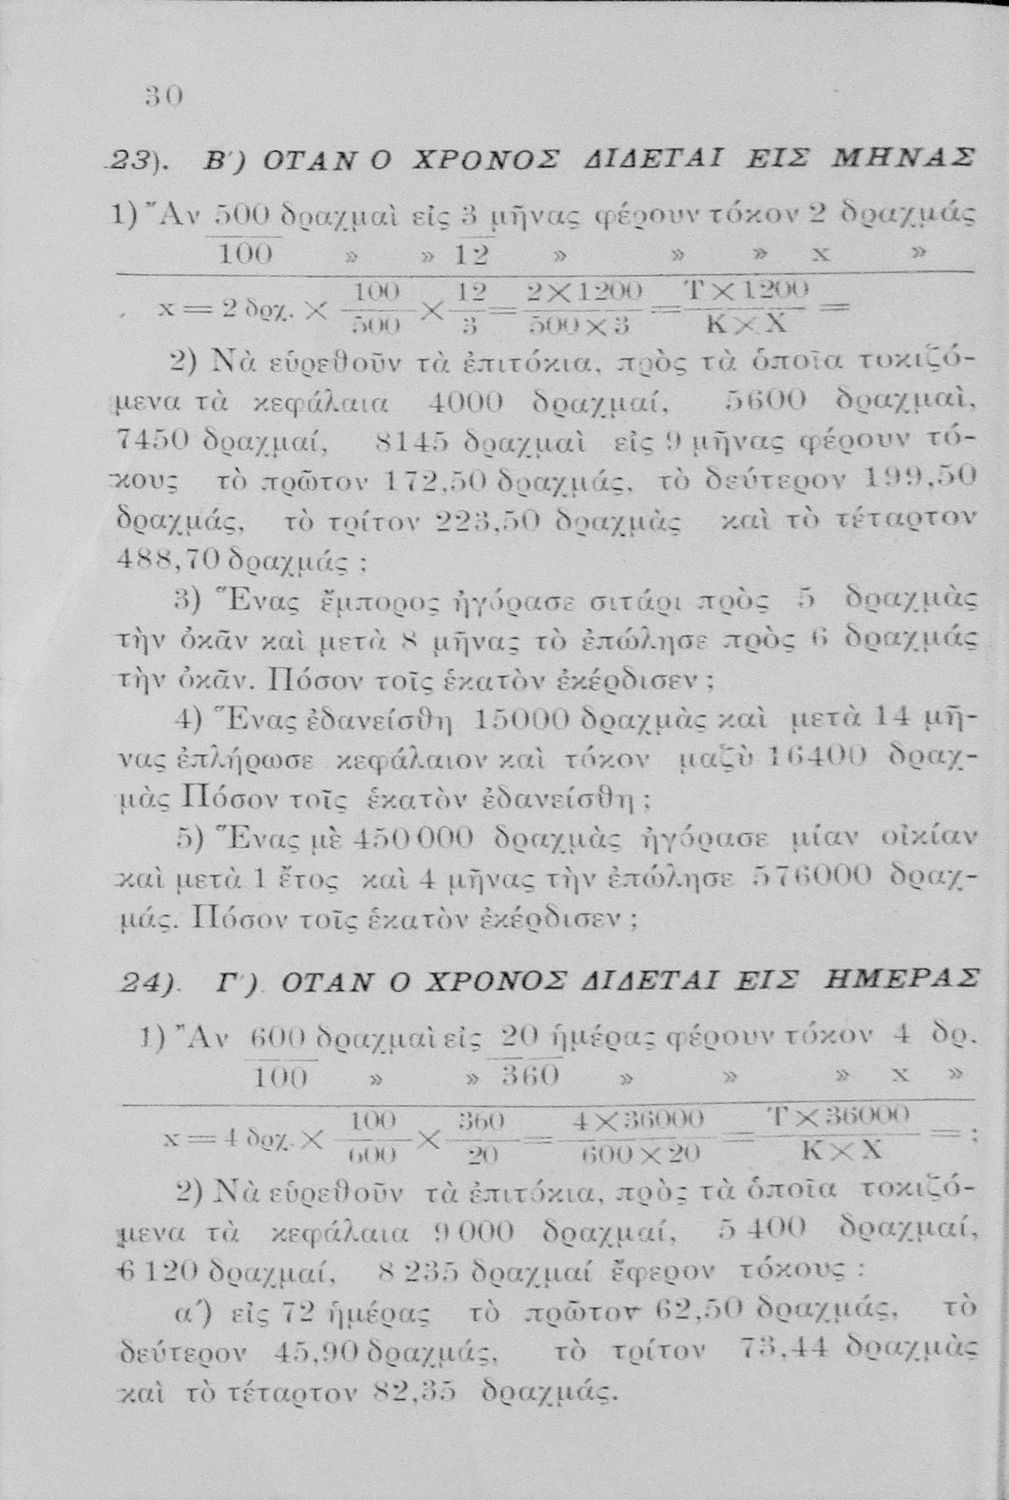 30
23). Β΄) ΟΤΑΝ Ο ΧΡΟΝΟΣ ΔΙΔΕΤΑΙ ΕΙΣ ΜΗΝΑΣ
1) Ἂν 500 δραχμαὶ εἰς 3 μῆνας φέρουν τόκον 2 δραχμάς
100 » » 12 » » » x »
x = 2 δρχ. × 100/500 × 12/3 = 2×1200/500×3 = Τ×1200/Κ×Χ =
2) Νὰ εὑρεθοῦν τὰ ἐπιτόκια, πρὸς τὰ ὁποῖα τοκιζό-
μενα τὰ κεφάλαια 4000 δραχμαί, 5600 δραχμαὶ,
7450 δραχμαί, 8145 δραχμαὶ εἰς 9 μῆνας φέρουν τό-
κους τὸ πρῶτον 172,50 δραχμάς, τὸ δεύτερον 199,50
δραχμάς, τὸ τρίτον 223,50 δραχμὰς καὶ τὸ τέταρτον
488,70 δραχμάς ;
3) Ἕνας ἔμπορος ἠγόρασε σιτάρι πρὸς 5 δραχμὰς
τὴν ὀκᾶν καὶ μετὰ 8 μῆνας τὸ ἐπώλησε πρὸς 6 δραχμάς
τὴν ὀκᾶν. Πόσον τοῖς ἑκατὸν ἐκέρδισεν ;
4) Ἕνας ἐδανείσθη 15000 δραχμὰς καὶ μετὰ 14 μῆ-
νας ἐπλήρωσε κεφάλαιον καὶ τόκον μαζὺ 16400 δραχ-
μὰς Πόσον τοῖς ἑκατὸν ἐδανείσθη ;
5) Ἕνας μὲ 450000 δραχμὰς ἠγόρασε μίαν οἰκίαν
καὶ μετὰ 1 ἔτος καὶ 4 μῆνας τὴν ἐπώλησε 576000 δραχ-
μάς. Πόσον τοῖς ἑκατὸν ἐκέρδισεν ;
24). Γ΄). ΟΤΑΝ Ο ΧΡΟΝΟΣ ΔΙΔΕΤΑΙ ΕΙΣ ΗΜΕΡΑΣ
1) Ἂν 600 δραχμαὶ εἰς 20 ἡμέρας φέρουν τόκον 4 δρ.
100 » » 360 » » » x »
x = 4 δρχ. × 100/600 × 360/20 = 4×36000/600×20 = Τ×36000/Κ×Χ = ;
2) Νὰ εὑρεθοῦν τὰ ἐπιτόκια, πρὸς τὰ ὁποῖα τοκιζό-
μενα τὰ κεφάλαια 9000 δραχμαί, 5400 δραχμαί,
6120 δραχμαί, 8235 δραχμαί ἔφερον τόκους :
α΄) εἰς 72 ἡμέρας τὸ πρῶτον 62,50 δραχμάς, τὸ
δεύτερον 45,90 δραχμάς, τὸ τρίτον 73,44 δραχμὰς
καὶ τὸ τέταρτον 82,35 δραχμάς.